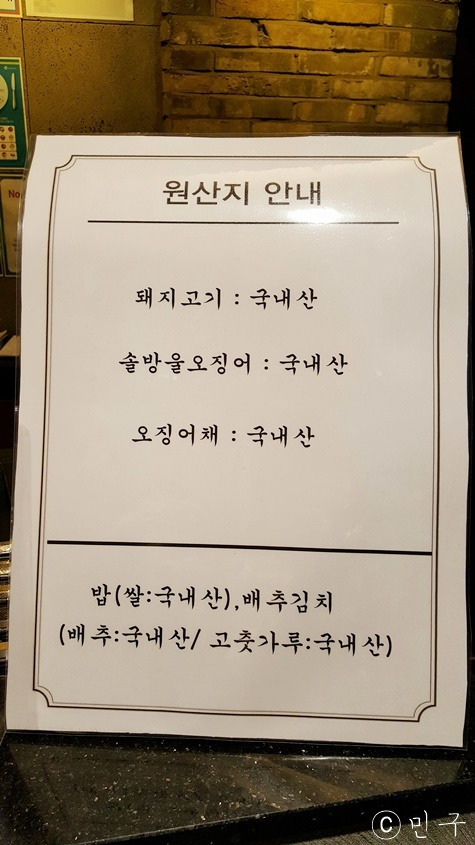 No
원산지 안내
돼지고기 : 국내산
솔방울오징어 : 국내산
오징어채 : 국내산
밥(쌀:국내산),배추김치
(배추:국내산/ 고춧가루:국내산)
ⓒ민구